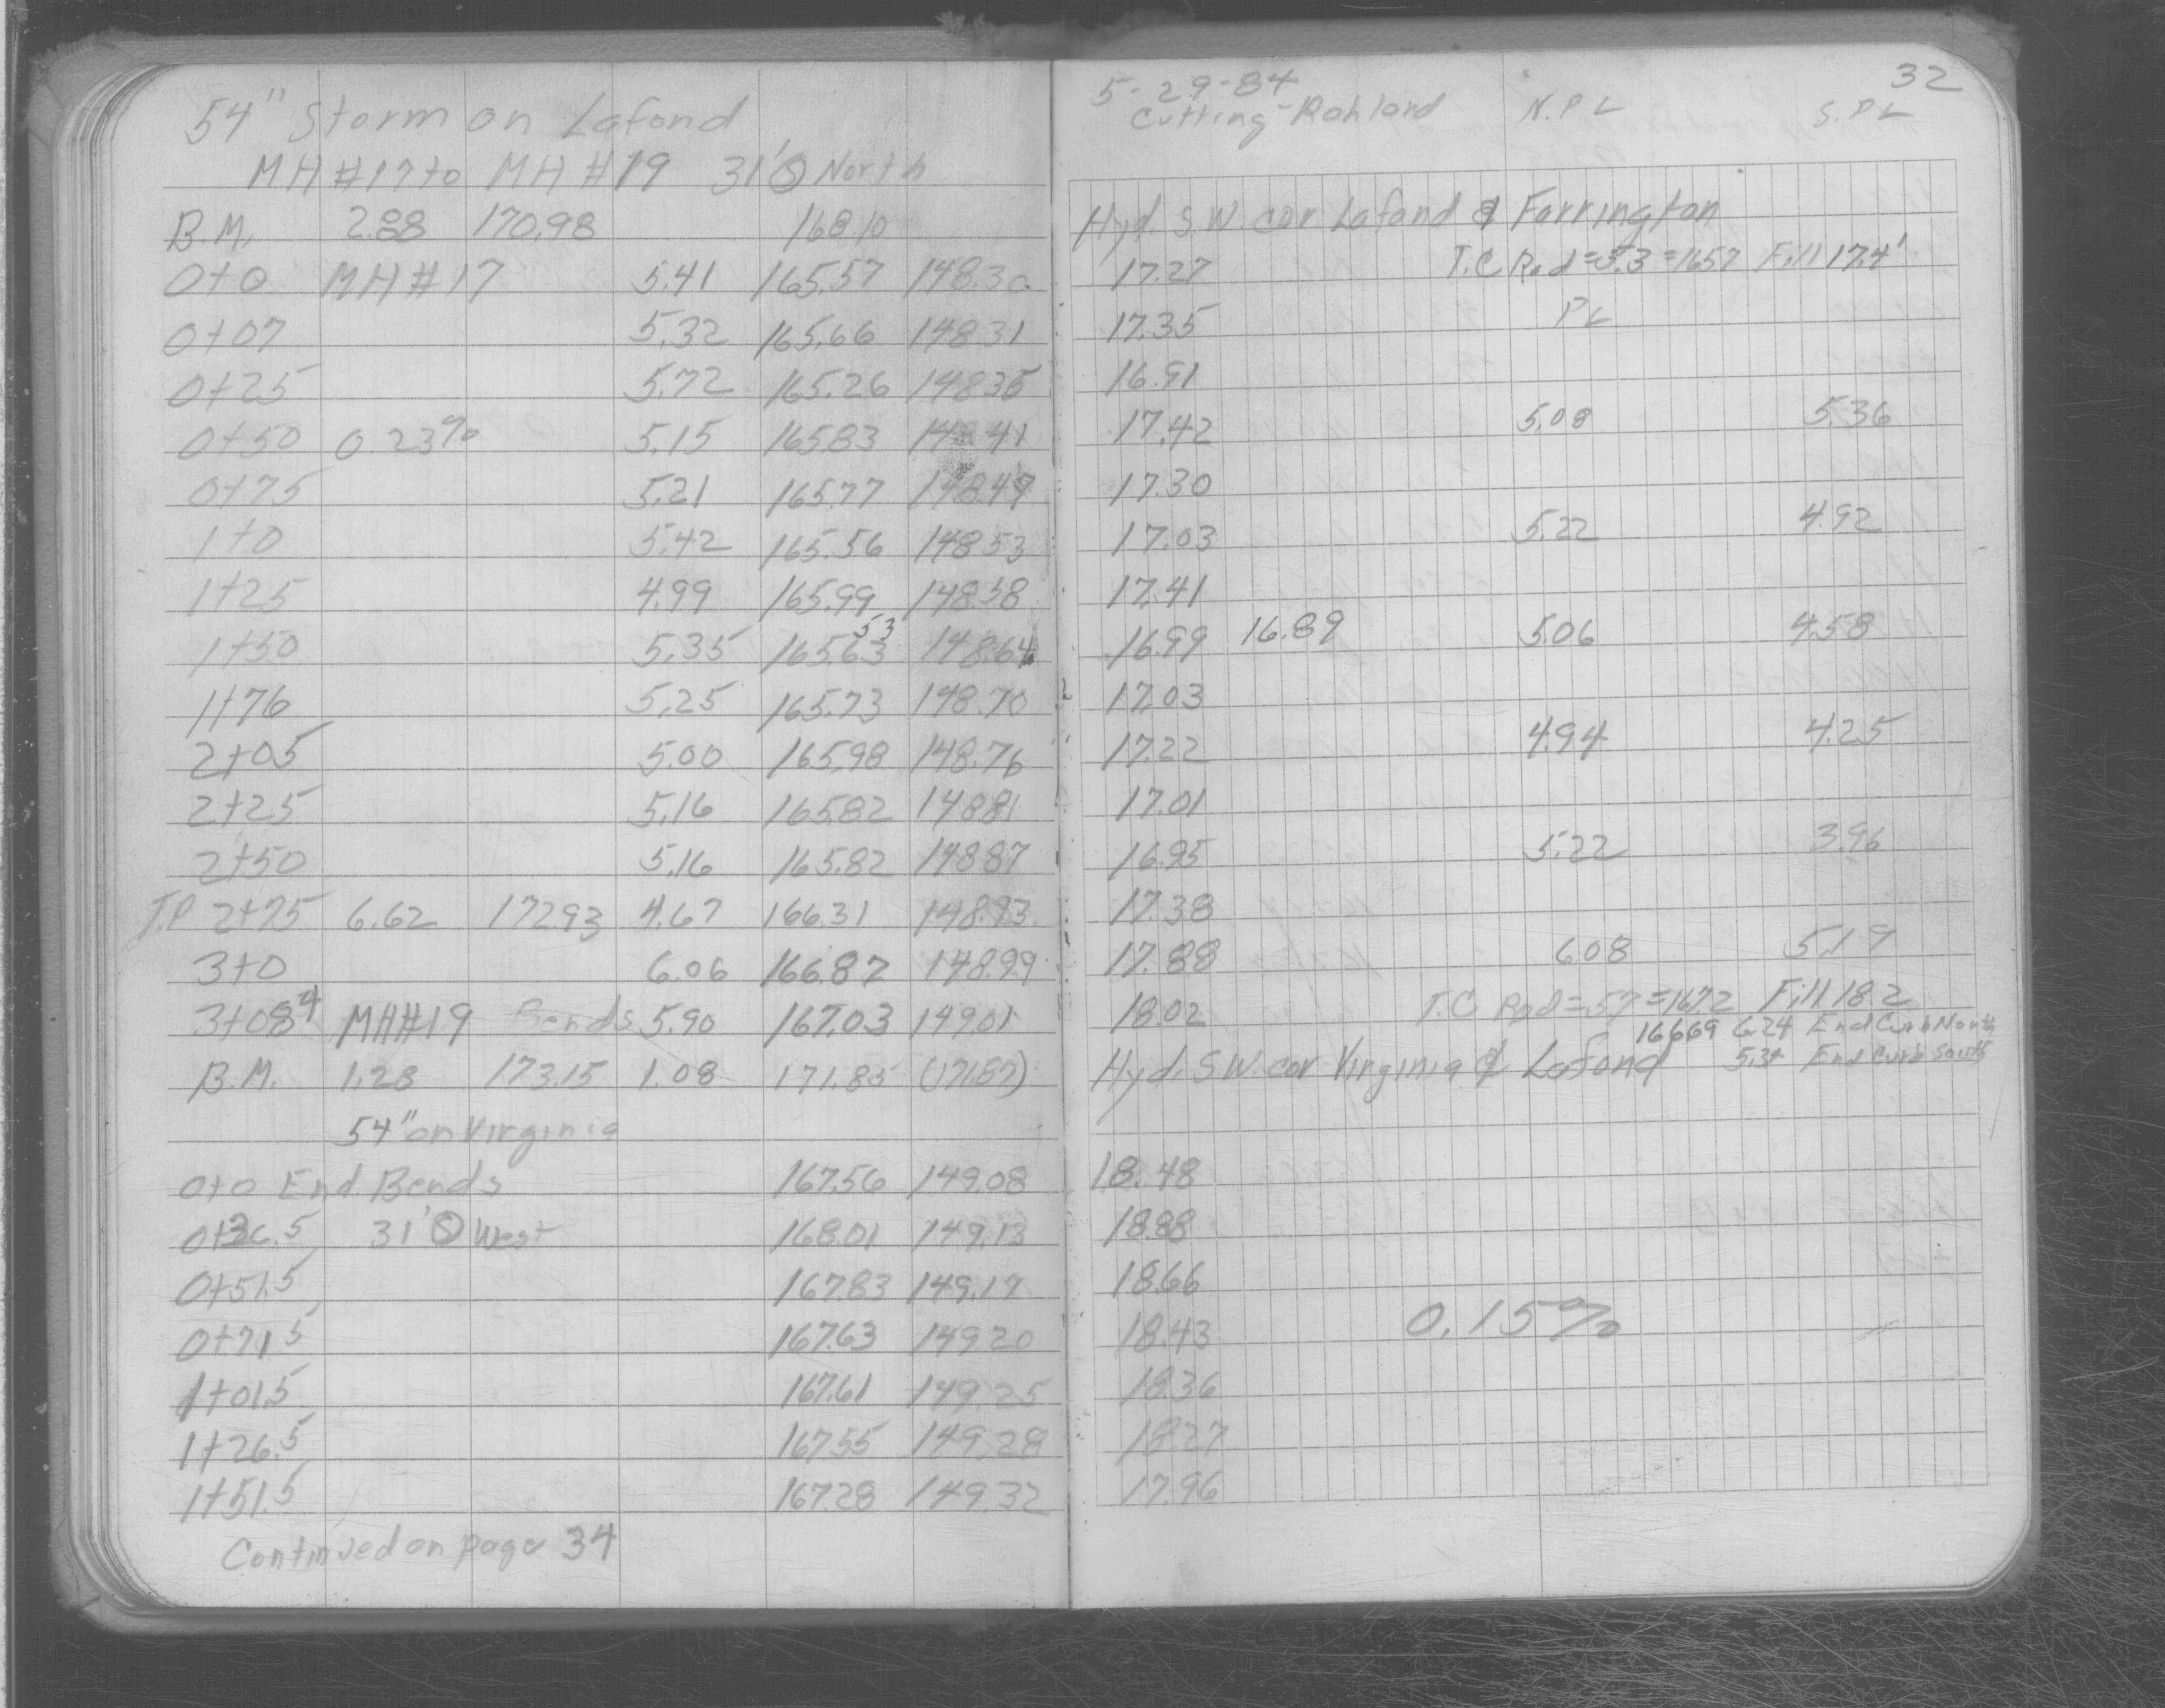 54" Storm on Lafond
MH #17 to MH #19 31' Ⓢ North
B.M. 2.88 170.98 168.10
0+0 MH #17 5.41 165.57 148.30
0+07 5.32 165.66 148.31
0+25 5.72 165.26 148.35
0+50 0.23% 5.15 165.83 148.41
0+75 5.21 165.77 148.47
1+0 5.42 165.56 148.53
1+25 4.99 165.99 148.58
53
1+50 5.35 165.63 148.64
1+76 5.25 165.73 148.70
2+05 5.00 165.98 148.76
2+25 5.16 165.82 148.81
2+50 5.16 165.82 148.87
T.P 2+75 6.62 172.93 4.67 166.31 148.93
3+0 6.06 166.87 148.99
3+08⁴ MH#19 Bends 5.90 167.03 149.01
B.M. 1.28 173.15 1.08 171.85 (171.87)
54" on Virginia
0+0 End Bends 167.56 149.08
31' Ⓢ West 168.01 149.13
0+51.5 167.83 149.17
0+71.5 167.63 149.20
1+01.5 167.61 149.25
1+26.5 167.55 149.28
1+51.5 167.28 149.32
Continued on page 34
32
5-29-84
Cutting-Rohland N.P L S.P L
Hyd. S.W. cor Lafond & Farrington
17.27 T.C Rod = 5.3 = 165.7 Fill 17.4'
17.35 PL
16.91
17.42 5.08 5.36
17.30
17.03 5.22 4.92
17.41
16.99 16.89 5.06 4.58
17.03
17.22 4.94 4.25
17.01
16.95 5.22 3.96
17.38
17.88 6.08 5.19
18.02 T.C Rod = 5.7 = 167.2 Fill 18.2
166.69 6.24 End Curb North
Hyd. S.W. cor Virginia & Lafond 5.34 End Curb South
18.48
18.88
18.66
18.43 0.15%
18.36
18.27
17.96